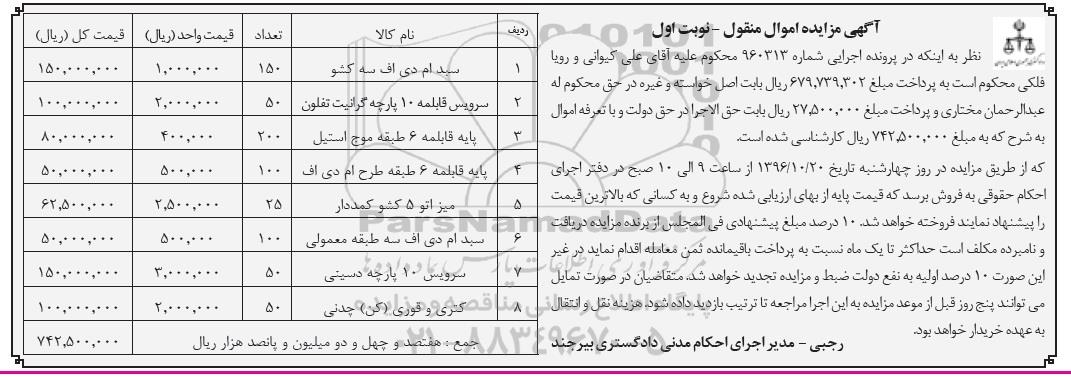 آگهی مزایده اموال منقول - نوبت اول
نظر به اینکه در پرونده اجرایی شماره ۹۶۰۳۱۳ محکوم علیه آقای علی کیوانی و رویا
فلکی محکوم است به پرداخت مبلغ ۶۷۹,۷۳۹,۳۰۲ ریال بابت اصل خواسته و غیره در حق محکوم له
عبدالرحمان مختاری و پرداخت مبلغ ۲۷,۵۰۰,۰۰۰ ریال بابت حق الاجرا در حق دولت و با تعرفه اموال
به شرح که به مبلغ ۷۴۲,۵۰۰,۰۰۰ ریال کارشناسی شده است.
که از طریق مزایده در روز چهارشنبه تاریخ ۱۳۹۶/۱۰/۲۰ از ساعت ۹ الی ۱۰ صبح در دفتر اجرای
احکام حقوقی به فروش برسد که قیمت پایه از بهای ارزیابی شده شروع و به کسانی که بالاترین قیمت
را پیشنهاد نمایند فروخته خواهد شد. ۱۰ درصد مبلغ پیشنهادی فی المجلس از برنده مزایده دریافت
و نامبرده مکلف است حداکثر تا یک ماه نسبت به پرداخت باقیمانده ثمن معامله اقدام نماید در غیر
این صورت ۱۰ درصد اولیه به نفع دولت ضبط و مزایده تجدید خواهد شد. متقاضیان در صورت تمایل
می توانند پنج روز قبل از موعد مزایده به این اجرا مراجعه تا ترتیب بازدید داده شود. هزینه نقل و انتقال
به عهده خریدار خواهد بود.
رجبی - مدیر اجرای احکام مدنی دادگستری بیرجند
ردیف نام کالا تعداد قیمت واحد (ریال) قیمت کل (ریال)
۱ سبد ام دی اف سه کشو ۱۵۰ ۱,۰۰۰,۰۰۰ ۱۵۰,۰۰۰,۰۰۰
۲ سرویس قابلمه ۱۰ پارچه گرانیت تفلون ۵۰ ۲,۰۰۰,۰۰۰ ۱۰۰,۰۰۰,۰۰۰
۳ پایه قابلمه ۶ طبقه موج استیل ۲۰۰ ۴۰۰,۰۰۰ ۸۰,۰۰۰,۰۰۰
۴ پایه قابلمه ۶ طبقه طرح ام دی اف ۱۰۰ ۵۰۰,۰۰۰ ۵۰,۰۰۰,۰۰۰
۵ میز اتو ۵ کشو کمددار ۲۵ ۲,۵۰۰,۰۰۰ ۶۲,۵۰۰,۰۰۰
۶ سبد ام دی اف سه طبقه معمولی ۱۰۰ ۵۰۰,۰۰۰ ۵۰,۰۰۰,۰۰۰
۷ سرویس ۱۰ پارچه دسینی ۵۰ ۳,۰۰۰,۰۰۰ ۱۵۰,۰۰۰,۰۰۰
۸ کتری و قوری (کن) چدنی ۵۰ ۲,۰۰۰,۰۰۰ ۱۰۰,۰۰۰,۰۰۰
جمع : هفتصد و چهل و دو میلیون و پانصد هزار ریال ۷۴۲,۵۰۰,۰۰۰
ParsNamadData
پایگاه اطلاع رسانی مناقصه و مزایده
۰۲۱-۸۸۳۴۹۶۷۰-۵